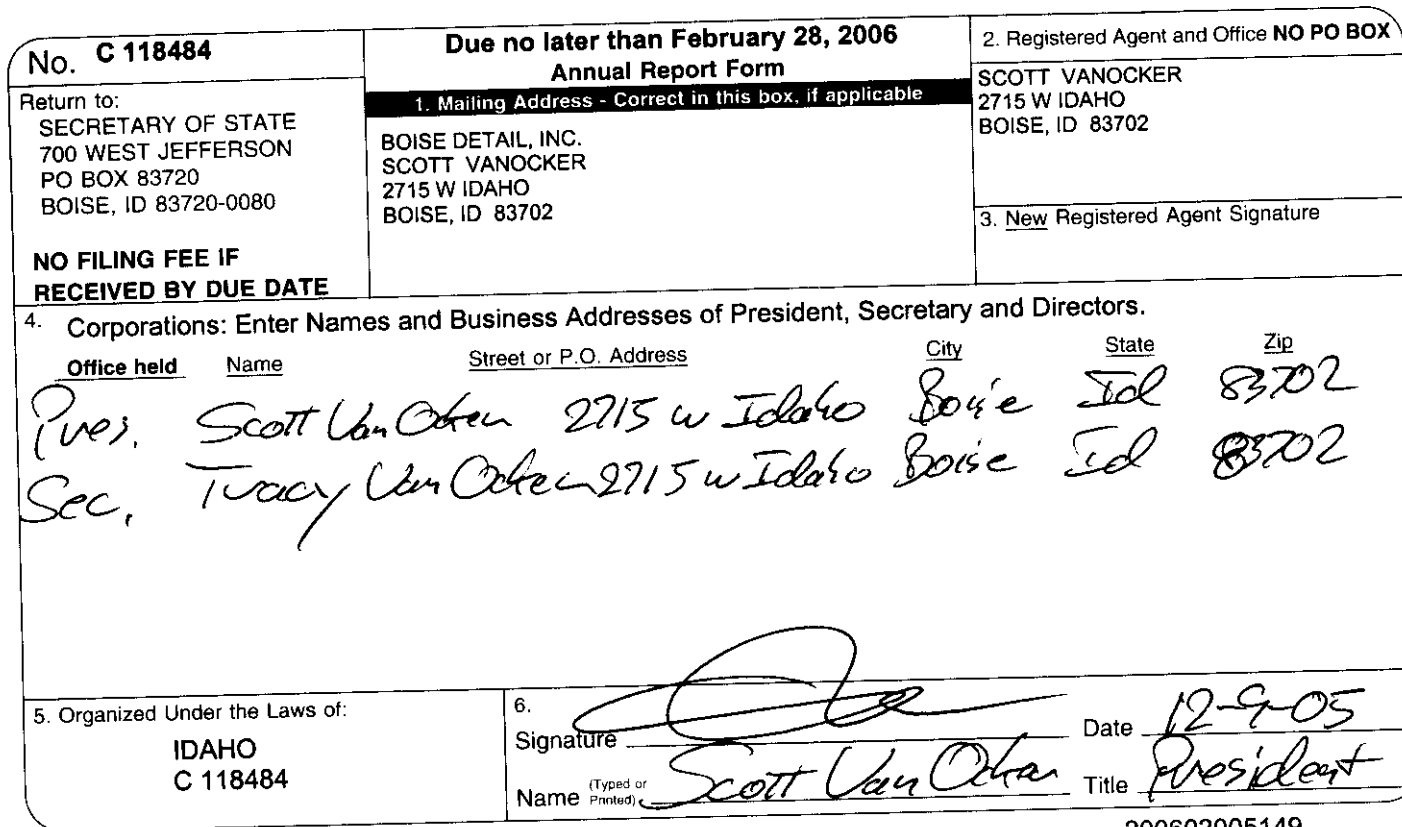 No. C 118484
Return to:
SECRETARY OF STATE
700 WEST JEFFERSON
PO BOX 83720
BOISE, ID 83720-0080
NO FILING FEE IF
RECEIVED BY DUE DATE
Due no later than February 28, 2006
Annual Report Form
1. Mailing Address - Correct in this box, if applicable
BOISE DETAIL, INC.
SCOTT VANOCKER
2715 W IDAHO
BOISE, ID 83702
2. Registered Agent and Office NO PO BOX
SCOTT VANOCKER
2715 W IDAHO
BOISE, ID 83702
3. New Registered Agent Signature
4. Corporations: Enter Names and Business Addresses of President, Secretary and Directors.
Office held Name Street or P.O. Address City State Zip
Pres. Scott Van Ocker 2715 w Idaho Boise Id 83702
Sec. Tracy Van Ocker 2715 w Idaho Boise Id 83702
5. Organized Under the Laws of:
IDAHO
C 118484
6.
Signature
Date 12-9-05
Name (Typed or Printed) Scott Van Ocker
Title President
200602005149